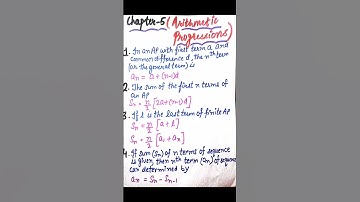 Chapter-5 (Arithmetic
Progressions)
1. In an AP with first term a and
common difference d, the nth term
(or the general term) is
an = a + (n-1)d
2. The sum of the first n terms of
an AP
Sn = n/2 [2a+(n-1)d]
3. If l is the last term of finite AP
Sn = n/2 [a + l]
Sn = n/2 [a1 + an]
4. If sum (Sn) of n terms of sequence
is given, then nth term (an) of sequence
can determined by
an = Sn - Sn-1